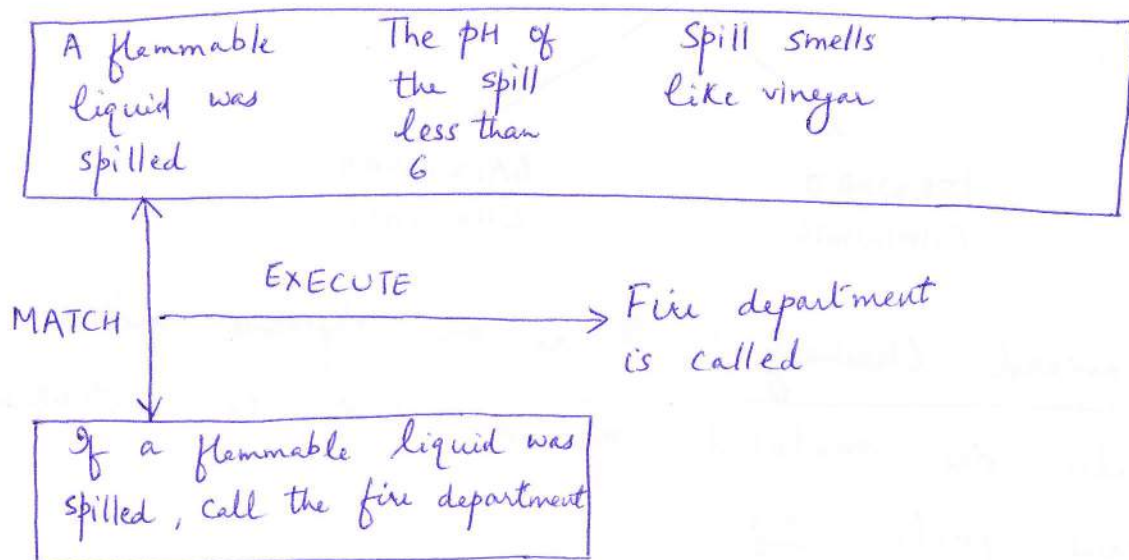 A flammable
liquid was
spilled
The pH of
the spill
less than
6
Spill smells
like vinegar
MATCH
EXECUTE
Fire department
is called
If a flammable liquid was
spilled, call the fire department